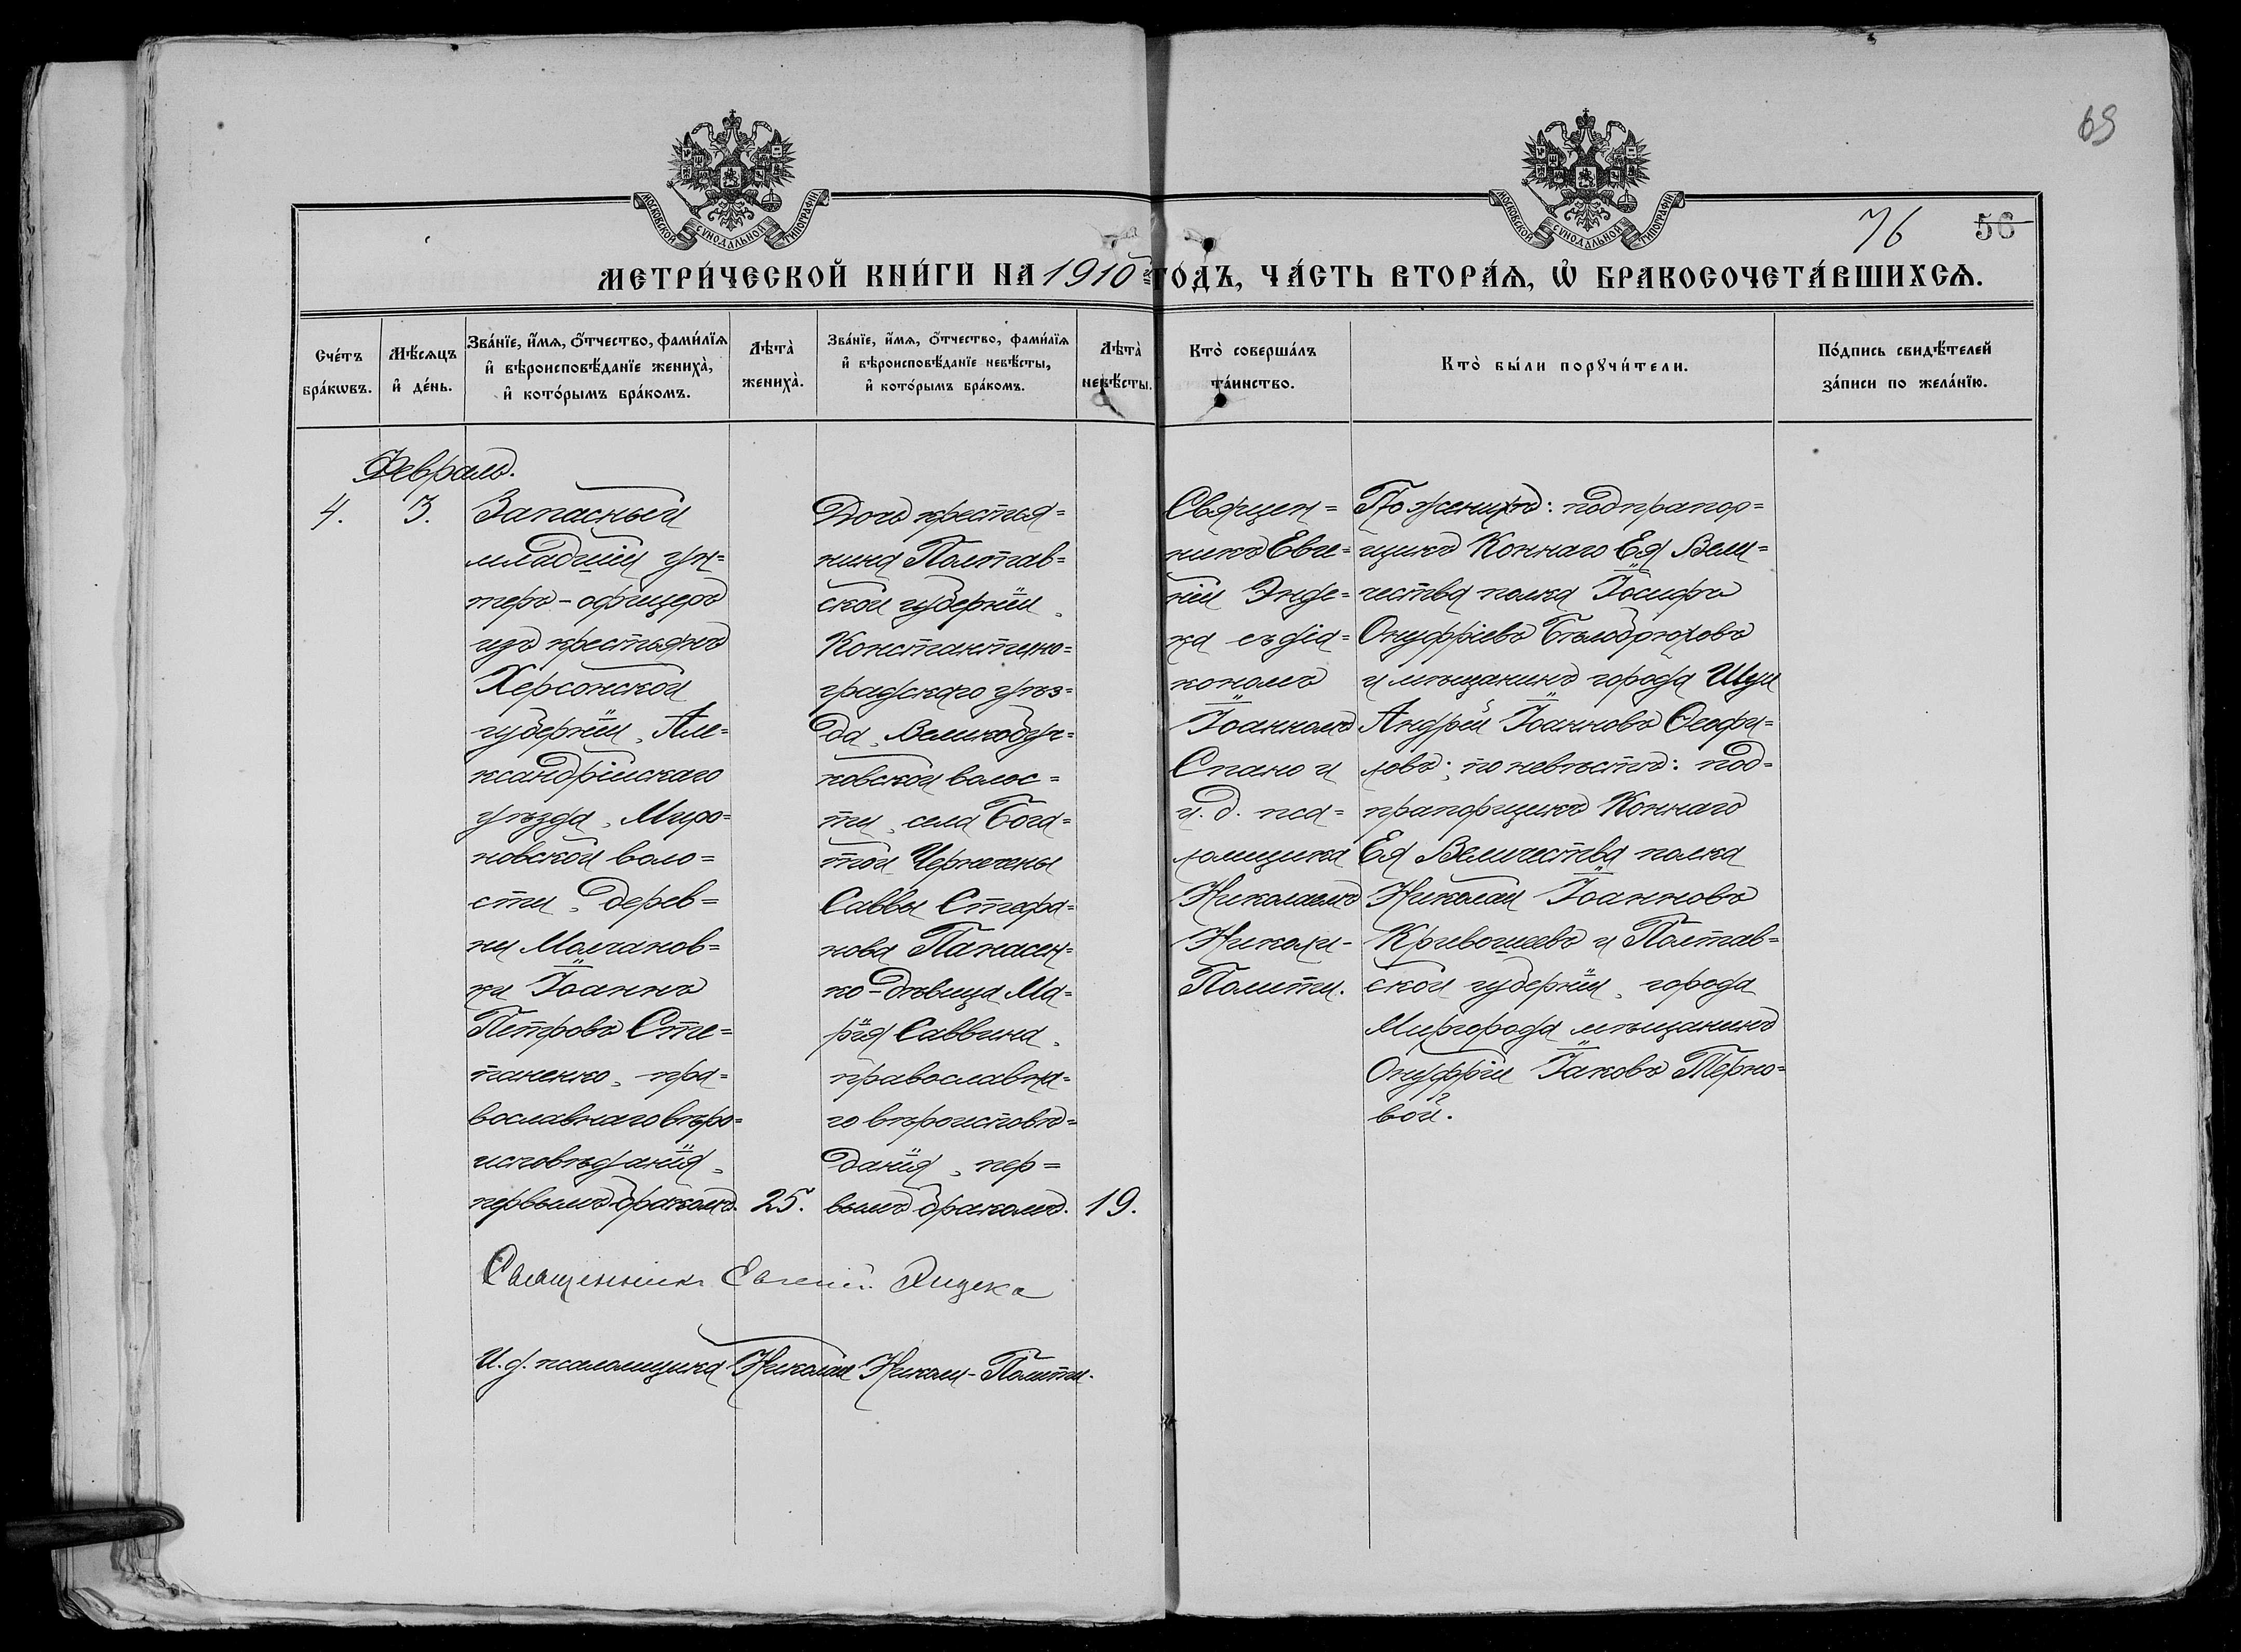 69
76 56
МОСКОВСКОЙ СѴНОДАЛЬНОЙ ТИПОГРАФІИ.
МОСКОВСКОЙ СѴНОДАЛЬНОЙ ТИПОГРАФІИ.
МЕТРИ́ЧЕСКОЙ КНИ́ГИ НА 1910 ГО́ДЪ, ЧА́СТЬ ВТОРА́Ѧ, Ѽ БРАКОСОЧЕТА́ВШИХСѦ.
Сче́тъ
бра́кѡвъ.
Мѣ́сѧцъ
и҆ де́нь.
Зва́нїе, и҆́мѧ, ѻ҆́тчество, фами́лїѧ
и҆ вѣроисповѣ́данїе жениха̀,
и҆ кото́рымъ бра́комъ.
Лѣта̀
жениха̀.
Зва́нїе, и҆́мѧ, ѻ҆́тчество, фами́лїѧ
и҆ вѣроисповѣ́данїе невѣ́сты,
и҆ кото́рымъ бра́комъ.
Лѣта̀
невѣ́сты.
Кто̀ соверша́лъ
та́инство.
Кто̀ бы́ли порꙋчи́тели.
По́дпись свидѣ́телей
за́писи по жела́нїю.
Февраль.
4. 3.
Запасный
младшій ун=
теръ-офицеръ
изъ крестьянъ
Херсонской
губерніи, Але=
ксандрійскаго
уѣзда, Миро=
новской воло=
сти, дерев=
ни Молчанов=
ки Іоаннъ
Петровъ Сте=
паненко, пра=
вославнаго вѣро=
исповѣданія,
первымъ бракомъ. 25.
Дочь крестья=
нина Полтав=
ской губерніи,
Константино=
градскаго уѣз=
да, Великобуч=
ковской волос=
ти, села Бога=
той Чернечины
Саввы Стефа=
нова Панасен=
ко-дѣвица Ма=
рія Саввина,
православна=
го вѣроисповѣ=
данія, пер=
вымъ бракомъ. 19.
Священ=
никъ Евге=
ній Энде=
ка съ діа=
кономъ
Іоанномъ
Спано и
и. д. пса=
ломщика
Николаемъ
Николи-
Политти.
По женихѣ: подпрапор=
щикъ Коннаго Ея Вели=
чества полка Іосифъ
Онуфріевъ Бѣлобрюховъ
и мѣщанинъ города Шуи
Андрей Іоанновъ Ѳеофи=
ловъ; по невѣстѣ: под=
прапорщикъ Коннаго
Ея Величества полка
Николай Іоанновъ
Кривошеевъ и Полтав=
ской губерніи, города
Миргорода мѣщанинъ
Онуфрій Іаковъ Терно=
вой.
Священникъ Евгеній Эндека
И. д. псаломщика Николай Николи-Политти.